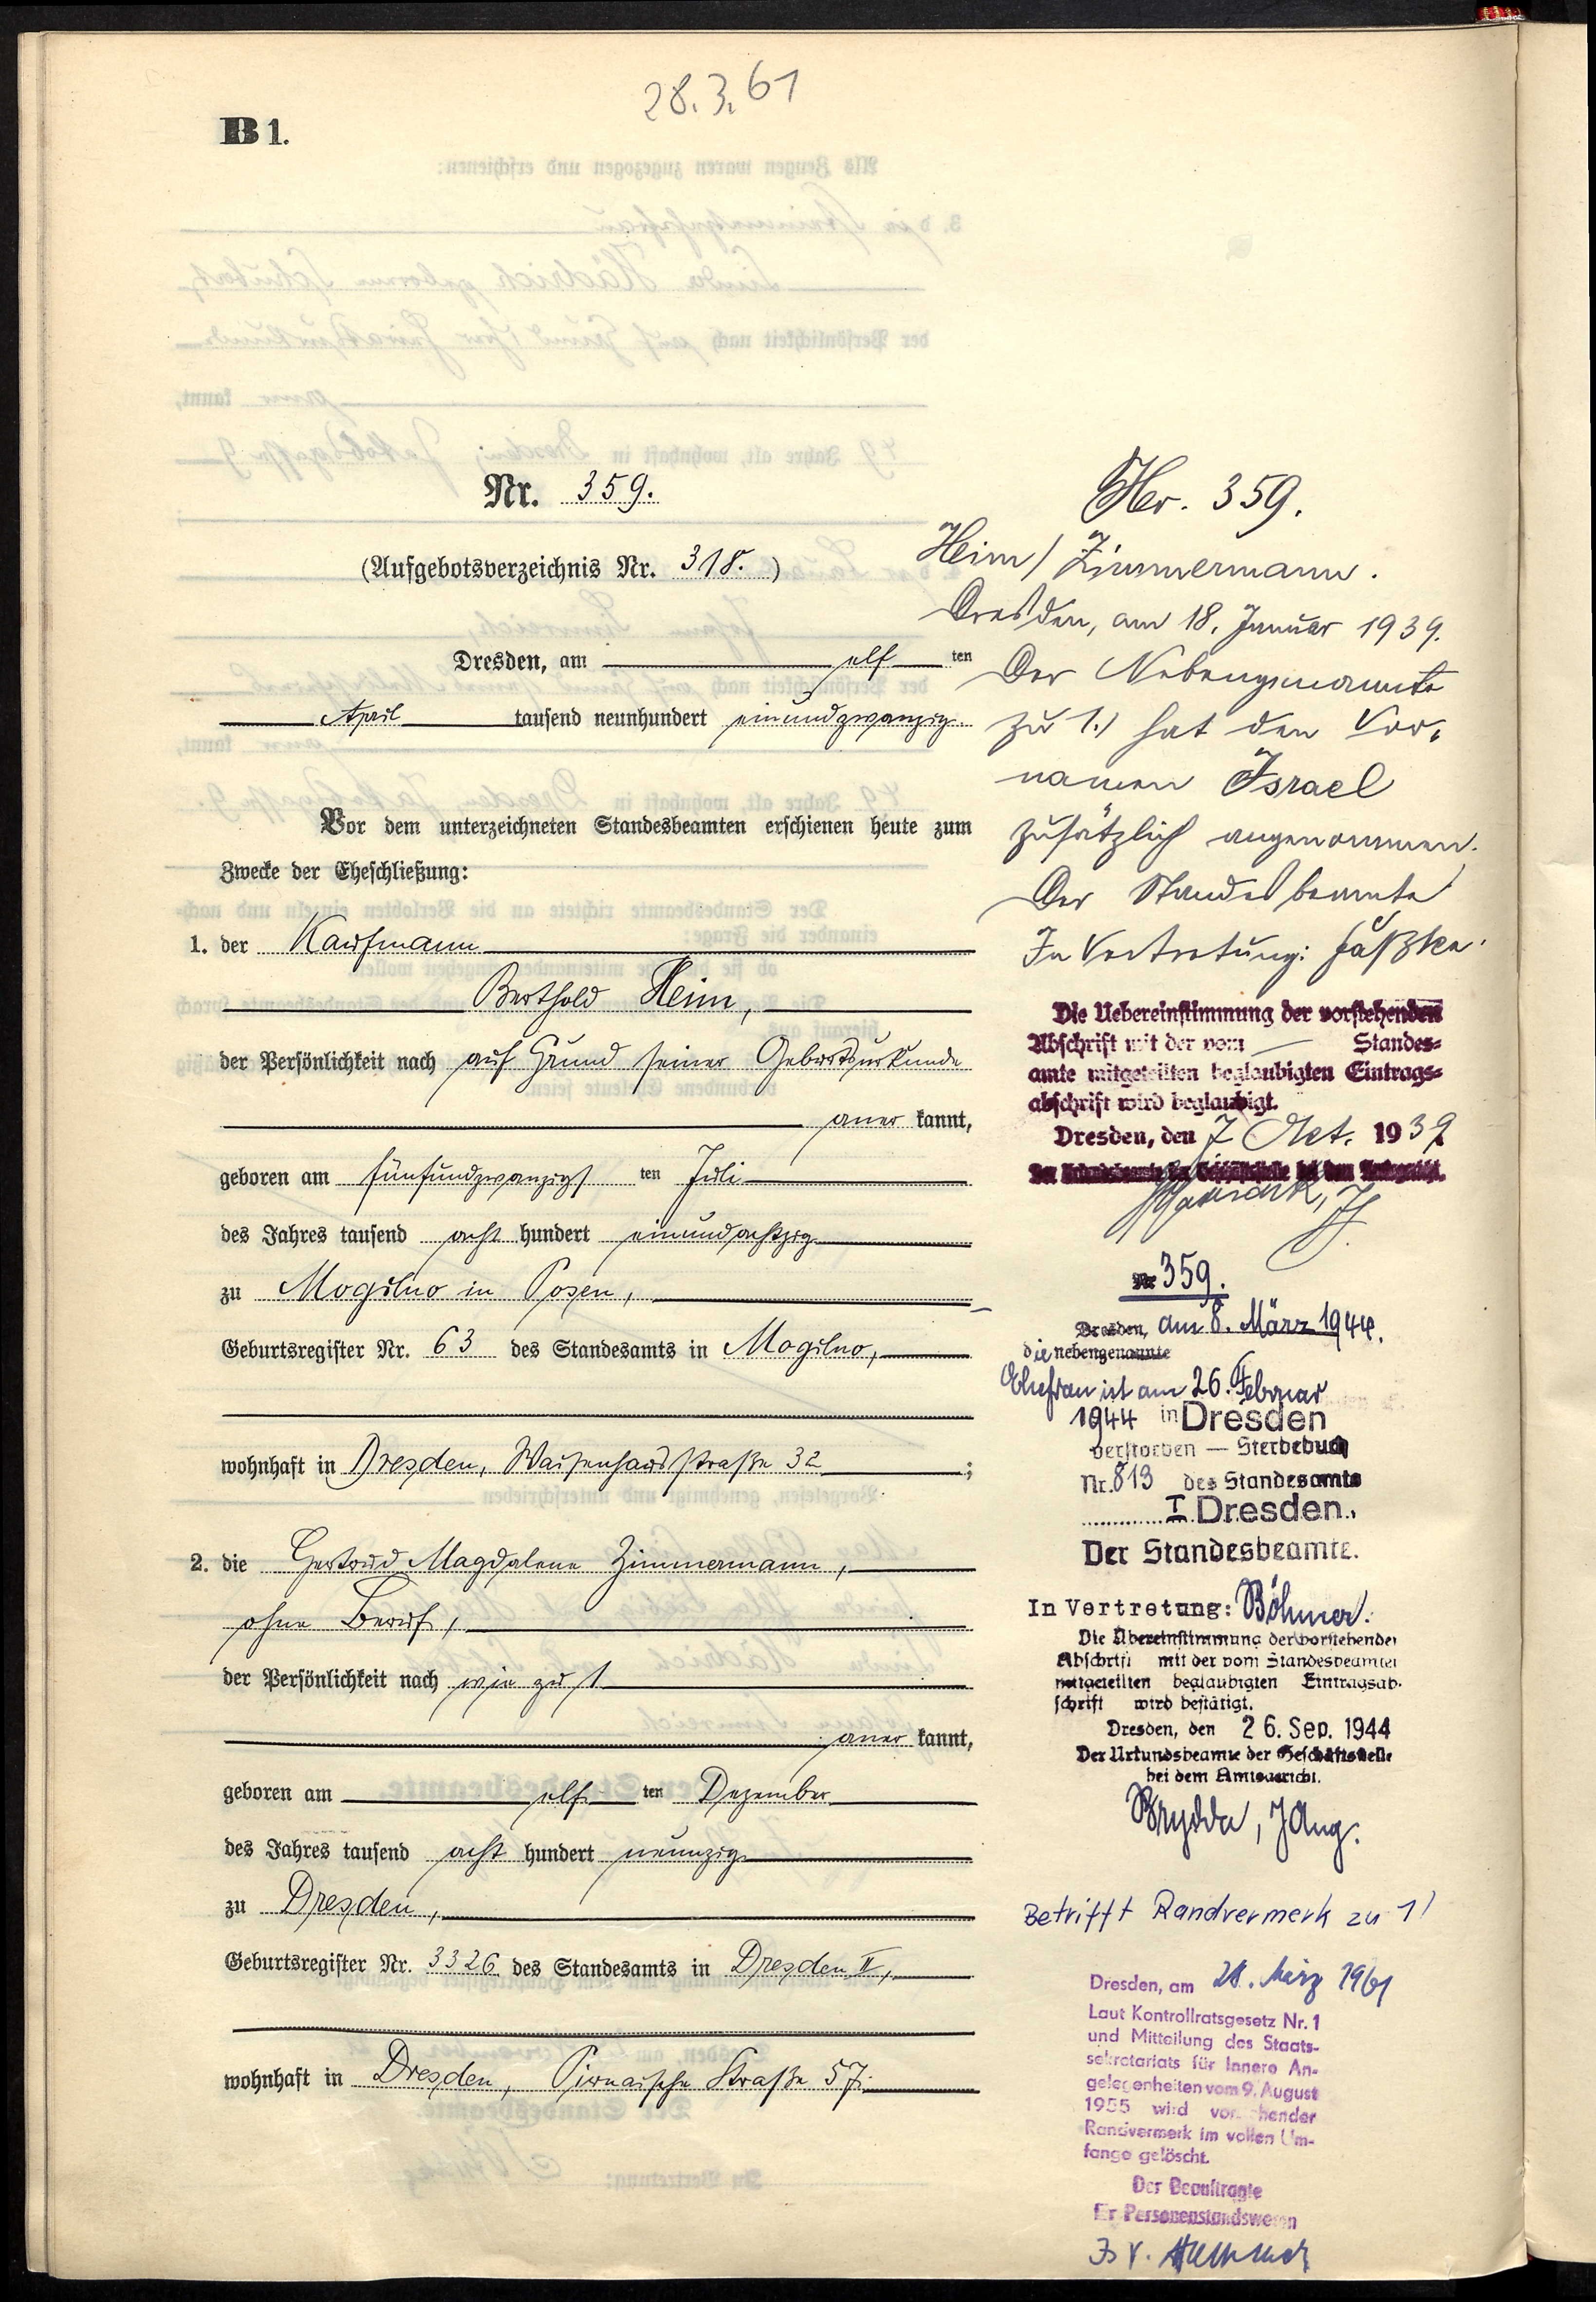 28.3.61
B 1.
Nr. 359.
(Aufgebotsverzeichnis Nr. 318.)
Dresden, am elf ten
April tausend neunhundert einundzwanzig.
Vor dem unterzeichneten Standesbeamten erschienen heute zum
Zwecke der Eheschließung:
1. der Kaufmann
Berthold Heim,
der Persönlichkeit nach auf Grund seiner Geburtsurkunde
aner kannt,
geboren am fünfundzwanzigs ten Juli
des Jahres tausend acht hundert einundachtzig
zu Mogilno in Posen,
Geburtsregister Nr. 63 des Standesamts in Mogilno,
wohnhaft in Dresden, Waisenhausstraße 32 ;
2. die Gertrud Magdalene Zimmermann,
ohne Beruf,
der Persönlichkeit nach wie zu 1
aner kannt,
geboren am elf ten Dezember
des Jahres tausend acht hundert neunzig
zu Dresden,
Geburtsregister Nr. 3326 des Standesamts in Dresden II,
wohnhaft in Dresden, Pirnaische Straße 57.
Nr. 359.
Heim / Zimmermann.
Dresden, am 18. Januar 1939.
Der Nebengenannte
zu 1.) hat den Vor-
namen Israel
zusätzlich angenommen.
Der Standesbeamte
In Vertretung:
Die Uebereinstimmung der vorstehenden
Abschrift mit der vom — Standes-
amte mitgeteilten beglaubigten Eintrags-
abschrift wird beglaubigt.
Dresden, den 7. Okt. 1939
Der Urkundsbeamte der Geschäftsstelle bei dem Amtsgericht.
Nr 359.
Dresden, am 8. März 1944.
die nebengenannte
Ehefrau ist am 26. Februar
1944 in Dresden
verstorben — Sterbebuch
Nr. 813 des Standesamts
I Dresden.
Der Standesbeamte.
In Vertretung: Böhmer.
Die Übereinstimmung der vorstehenden
Abschrift mit der vom Standesbeamten
mitgeteilten beglaubigten Eintragsab-
schrift wird bestätigt.
Dresden, den 26. Sep. 1944
Der Urkundsbeamte der Geschäftsstelle
bei dem Amtsgericht.
Brydda, JAng.
Betrifft Randvermerk zu 1)
Dresden, am 28. März 1961
Laut Kontrollratsgesetz Nr. 1
und Mitteilung des Staats-
sekretariats für Innere An-
gelegenheiten vom 9. August
1955 wird vorstehender
Randvermerk im vollen Um-
fange gelöscht.
Der Beauftragte
für Personenstandswesen
I. V.